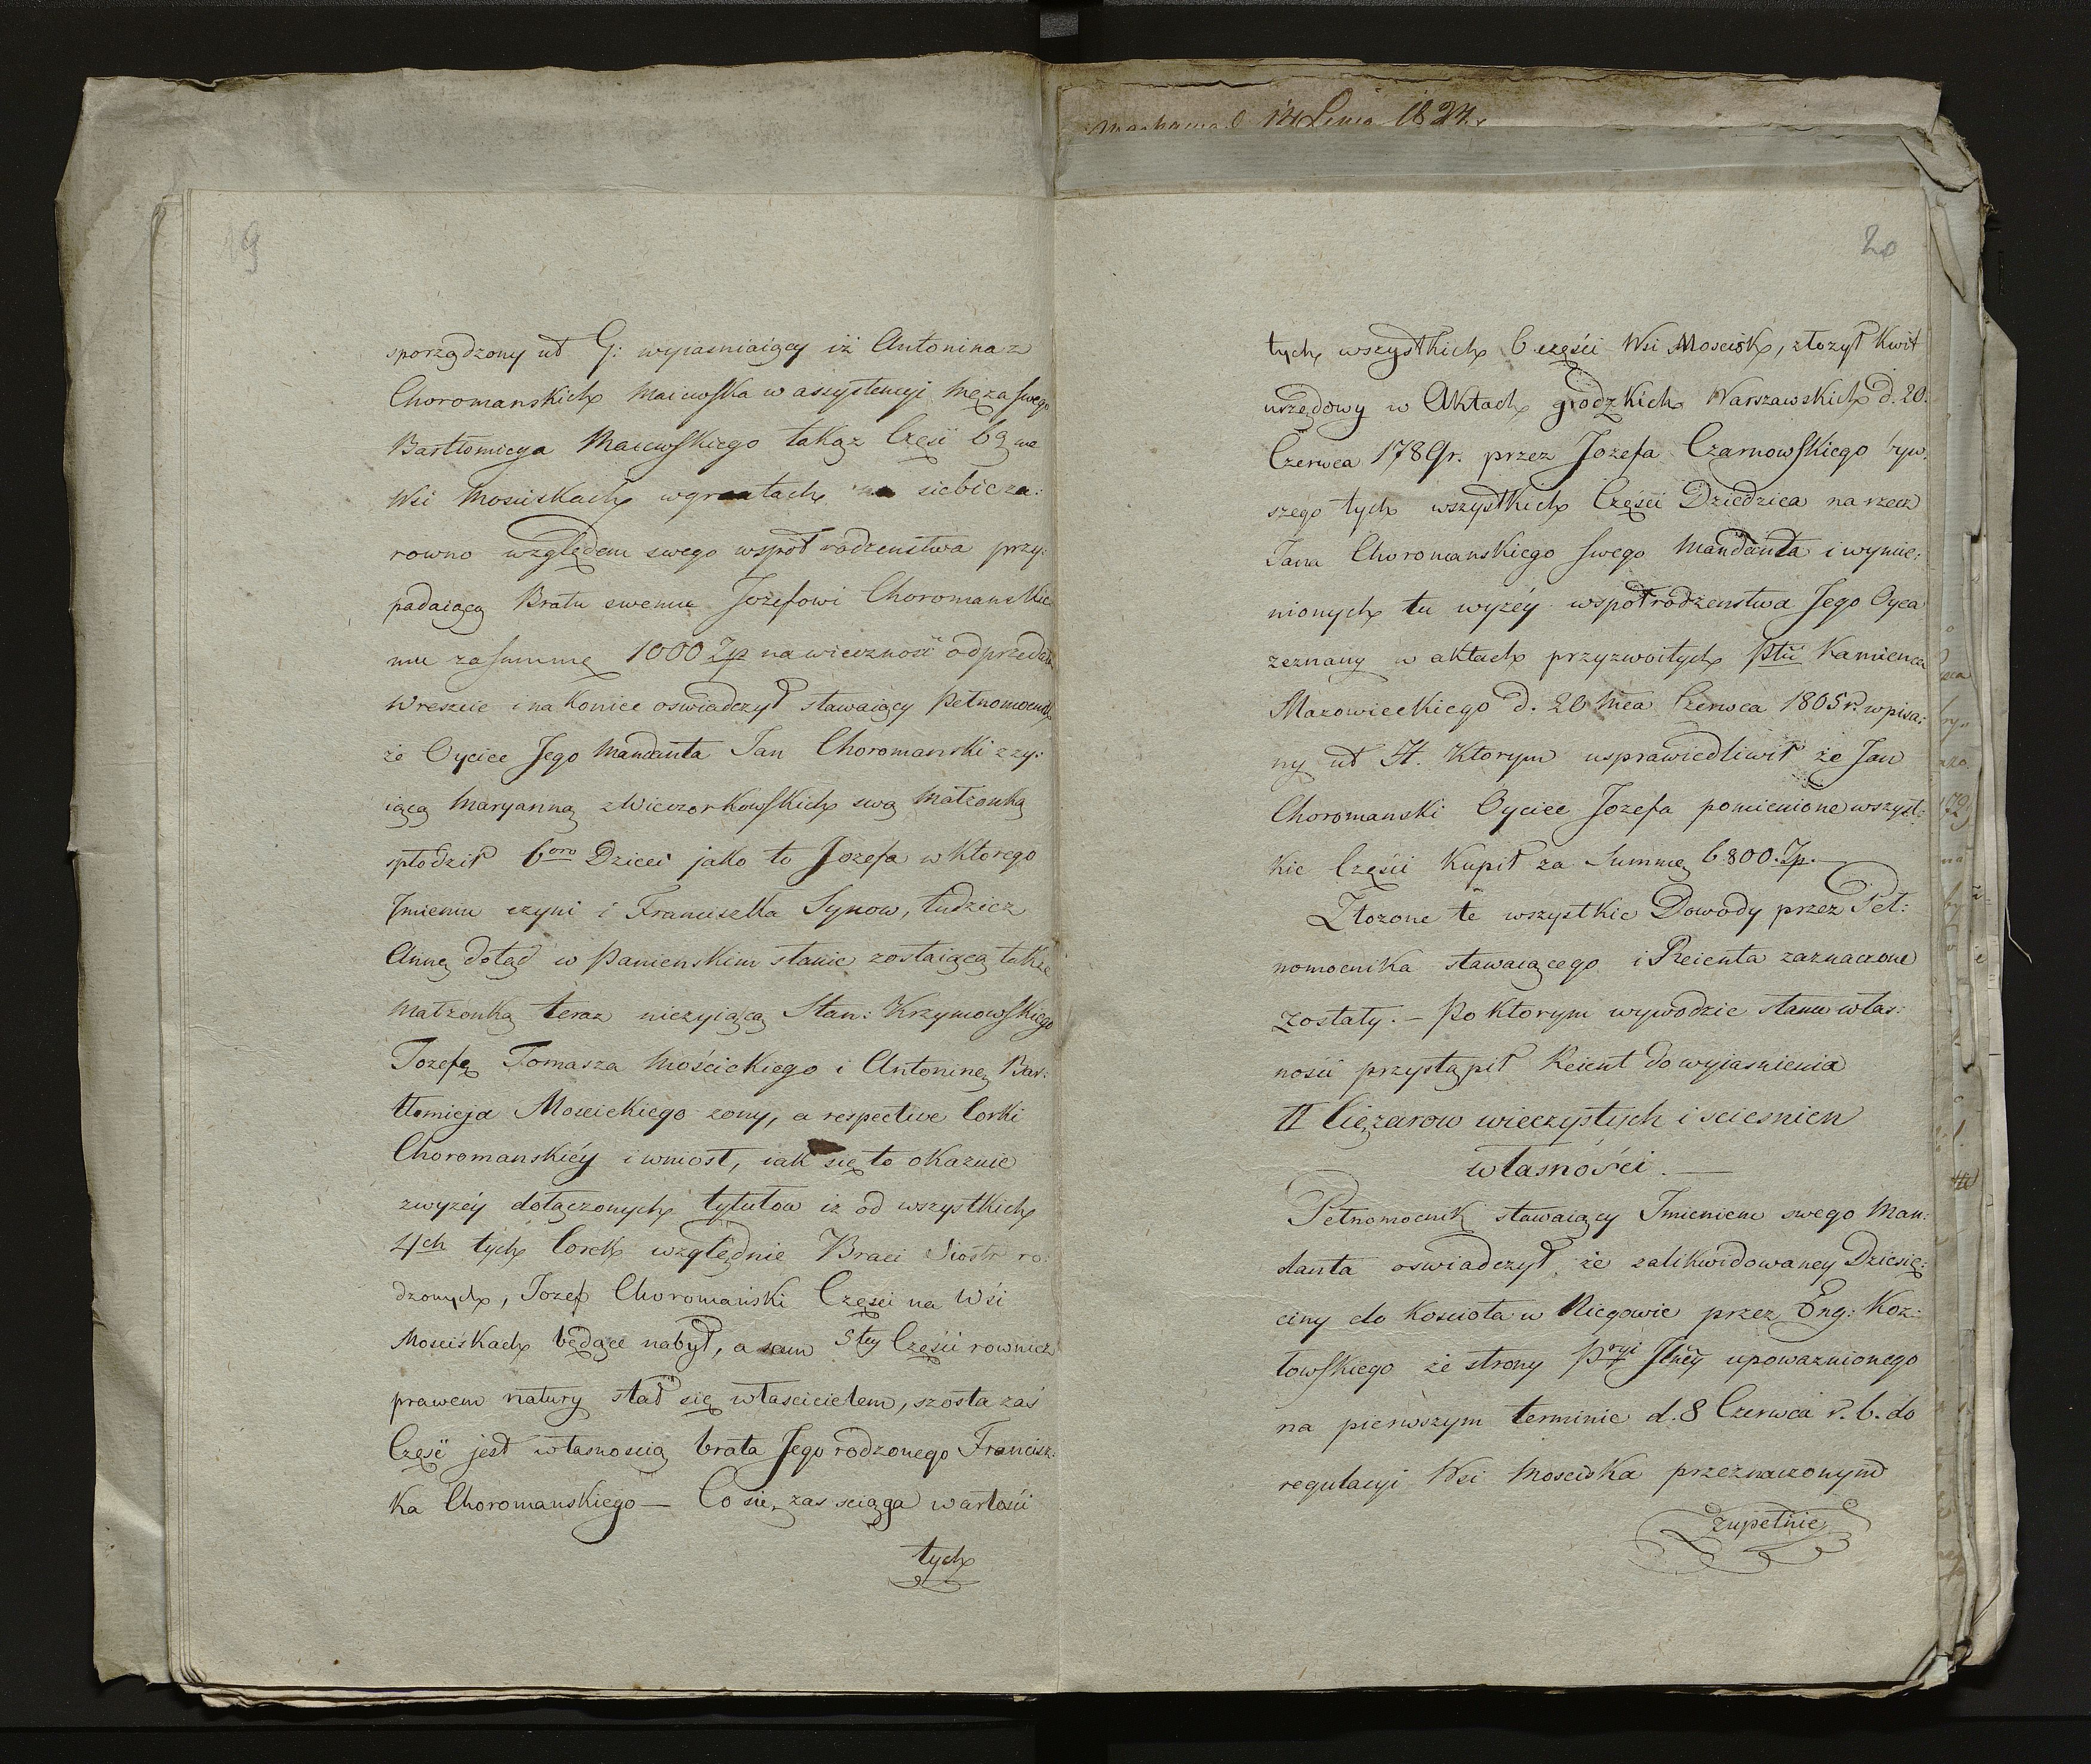 19
sporządzony ut G: wyiasniaiący iż Antonina z
Choromanskich Maiewska w assystencyi męza swego
Bartłomieya Maiewskiego takąż Część 6tą we
Wsi Mosciskach w gruntach na siebie za:
rowno względem swego wspoł rodzeństwa przy:
padaiącą Bratu swemu Jozefowi Choromanskie
mu za summę 1000 Zp na wieczność odprzedała
Wreszcie i na koniec oswiadczył stawaiący Pełnomocnik
że Oyciec Jego Mandanta Jan Choromanski z ży:
iącą Maryanną z Wieczorkowskich swą Małżonką
spłodził 6oro Dzieci jako to Jozefa w ktorego
Imieniu czyni i Franciszka Synow, tudzież
Annę dotąd w Panienskim stanie zostaiącą także
Małżonkę teraz nieżyiącą Stan: Krzymowskiego
Jozefę Tomasza Mościckiego i Antoninę Bar:
tłomieja Moscickiego żony, a respective Corki
Choromanskiéy i wniosł, iak się to okazuie
z wyzéy dołączonych tytułow iż od wszystkich
4ch tych Corek względnie Braci Siostr ro:
dzonych, Jozef Choromański Części na Wsi
Mosciskach będące nabył, a sam 5tey Części rownież
prawem natury stał się włascicielem, szosta zaś
Część jest własnoscią brata Jego rodzonego Francisz:
ka Choromanskiego — Co się zas sciąga wartości
tych
Lipca 1824.
20
tych wszystkich 6 części Wsi Moscisk, złożył Kwit
urzędowy w Aktach grodzkich Warszawskich d. 20.
Czerwca 1789r. przez Jozefa Czarnowskiego byw:
szego tych wszystkich Części Dziedzica na rzecz
Jana Choromanskiego swego Mandanta i wymie:
nionych tu wyzéy wspołrodzenstwa Jego Oyca
zeznany w aktach przyzwoitych Ptu Kamienca
Mazowieckiego d. 20 Mca Czerwca 1805 r. wpisa:
ny ut H. Ktorym usprawiedliwił że Jan
Choromanski Oyciec Jozefa pomienione wszyst:
kie Części Kupił za Summę 6800. Zp. —
Złozone te wszystkie Dowody przez Peł:
nomocnika stawaiącego i Reienta zaznaczone
zostały. — Po ktorym wywodzie stanu włas:
ności przystąpił Reient do wyiasnienia
II Cięzarow wieczystych i sciesnien
własności. —
Pełnomocnik stawaiący Imieniem swego Man:
danta oswiadczył, że zalikwidowaney Dziesię:
ciny do Kościoła w Niegowie przez Eug: Koz:
łowskiego ze strony upowaznionego
na pierwszym terminie d. 8 Czerwca r. b. do
regulacyi Wsi Mosciska przeznaczonym
zupełnie